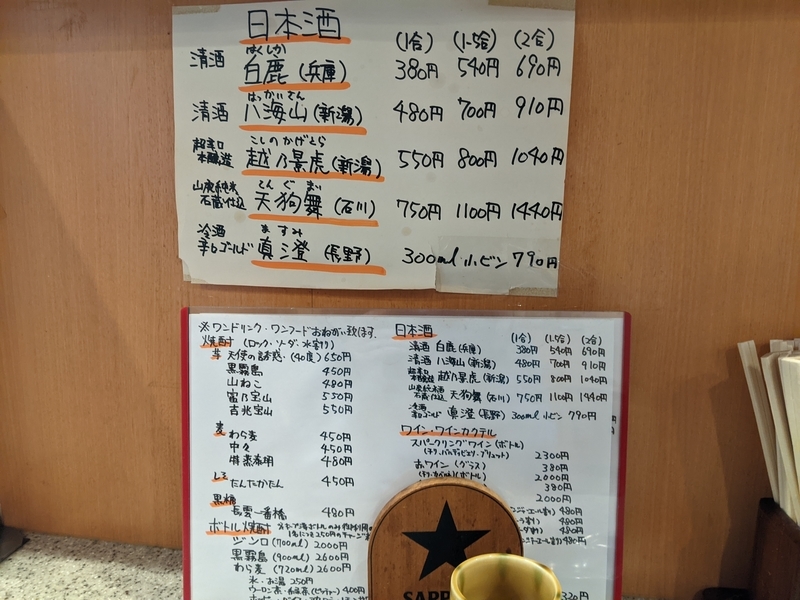 日本酒
(1合) (1.5合) (2合)
はくしか
清酒 白鹿 (兵庫) 380円 540円 690円
はっかいさん
清酒 八海山 (新潟) 480円 700円 910円
こしのかげとら
超辛口 本醸造 越乃景虎 (新潟) 550円 800円 1040円
てんぐまい
山廃純米 石蔵仕込 天狗舞 (石川) 750円 1100円 1440円
ますみ
冷酒 辛口ゴールド 真澄 (長野) 300ml 小ビン 790円
※ワンドリンク・ワンフードおねがい致します。
焼酎 (ロック・ソーダ・水割り)
芋 天使の誘惑 (40度) 650円
黒霧島 450円
山ねこ 480円
富乃宝山 550円
吉兆宝山 550円
麦 わら麦 450円
中々 450円
特蒸泰明 480円
しそ たんたかたん 450円
黒糖
長雲一番橋 480円
ボトル焼酎
ジンロ (700ml) 2000円
黒霧島 (900ml) 2600円
わら麦 (720ml) 2600円
氷・お湯 250円
日本酒
(1合) (1.5合) (2合)
清酒 白鹿 (兵庫) 380円 540円 690円
清酒 八海山 (新潟) 480円 700円 910円
超辛口 本醸造 越乃景虎 (新潟) 550円 800円 1040円
山廃純米 石蔵仕込 天狗舞 (石川) 750円 1100円 1440円
冷酒 辛口ゴールド 真澄 (長野) 300ml 小ビン 790円
ワイン・ワインカクテル
スパークリングワイン (ボトル)
2300円
赤ワイン (グラス) 380円
(ボトル) 2000円
380円
2000円
480円
480円
480円
480円
320円